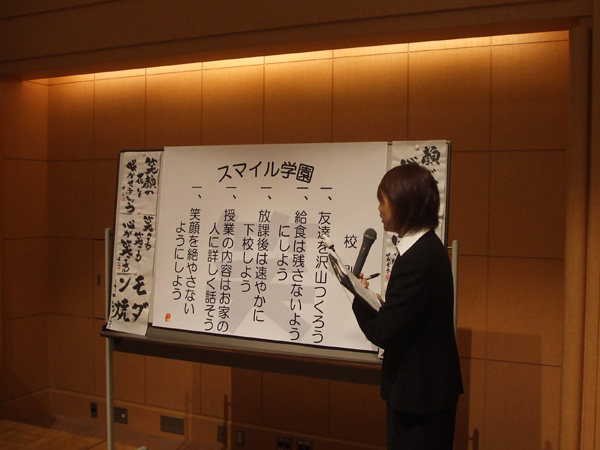 スマイル学園
校
一、友達を沢山つくろう
一、給食は残さないよう
にしよう
一、放課後は速やかに
下校しよう
一、授業の内容はお家の
人に詳しく話そう
一、笑顔を絶やさない
ようにしよう
笑顔の
モダ
ン焼
顔